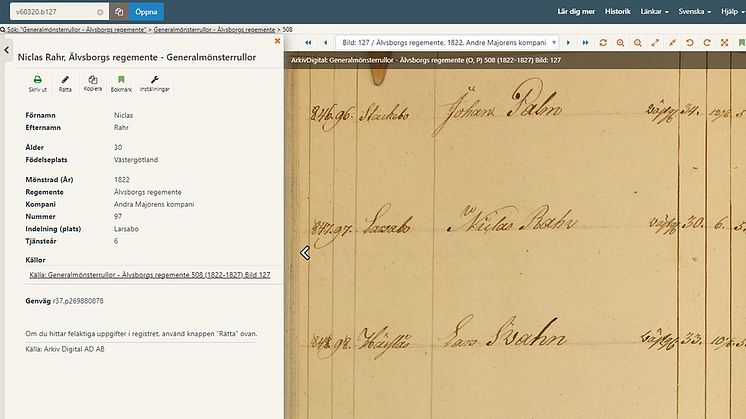 v60320.b127 Öppna Lär dig mer Historik Länkar Svenska Hjälp
Sök: "Generalmönsterrullor - Älvsborgs regemente" > Sök: Generalmönsterrullor - Älvsborgs regemente > 508
Niclas Rahr, Älvsborgs regemente - Generalmönsterrullor
Skriv ut Rätta Kopiera Bokmärk Inställningar
Förnamn Niclas
Efternamn Rahr
Ålder 30
Födelseplats Västergötland
Mönstrad (År) 1822
Regemente Älvsborgs regemente
Kompani Andra Majorens kompani
Nummer 97
Indelning (plats) Larsabo
Tjänsteår 6
Källor
Källa: Generalmönsterrullor - Älvsborgs regemente 508 (1822-1827) Bild 127
Genväg r37.p269880878
Om du hittar felaktiga uppgifter i registret, använd knappen "Rätta" ovan.
Källa: Arkiv Digital AD AB
Bild: 127 / Älvsborgs regemente. 1822. Andre Majorens kompani
ArkivDigital: Generalmönsterrullor - Älvsborgs regemente (O, P) 508 (1822-1827) Bild: 127
846. 96. Stackebo Johan Palm 34.
847. 97. Niclas Rahr 30. 6.
848. 98. Lars Svahn 33.